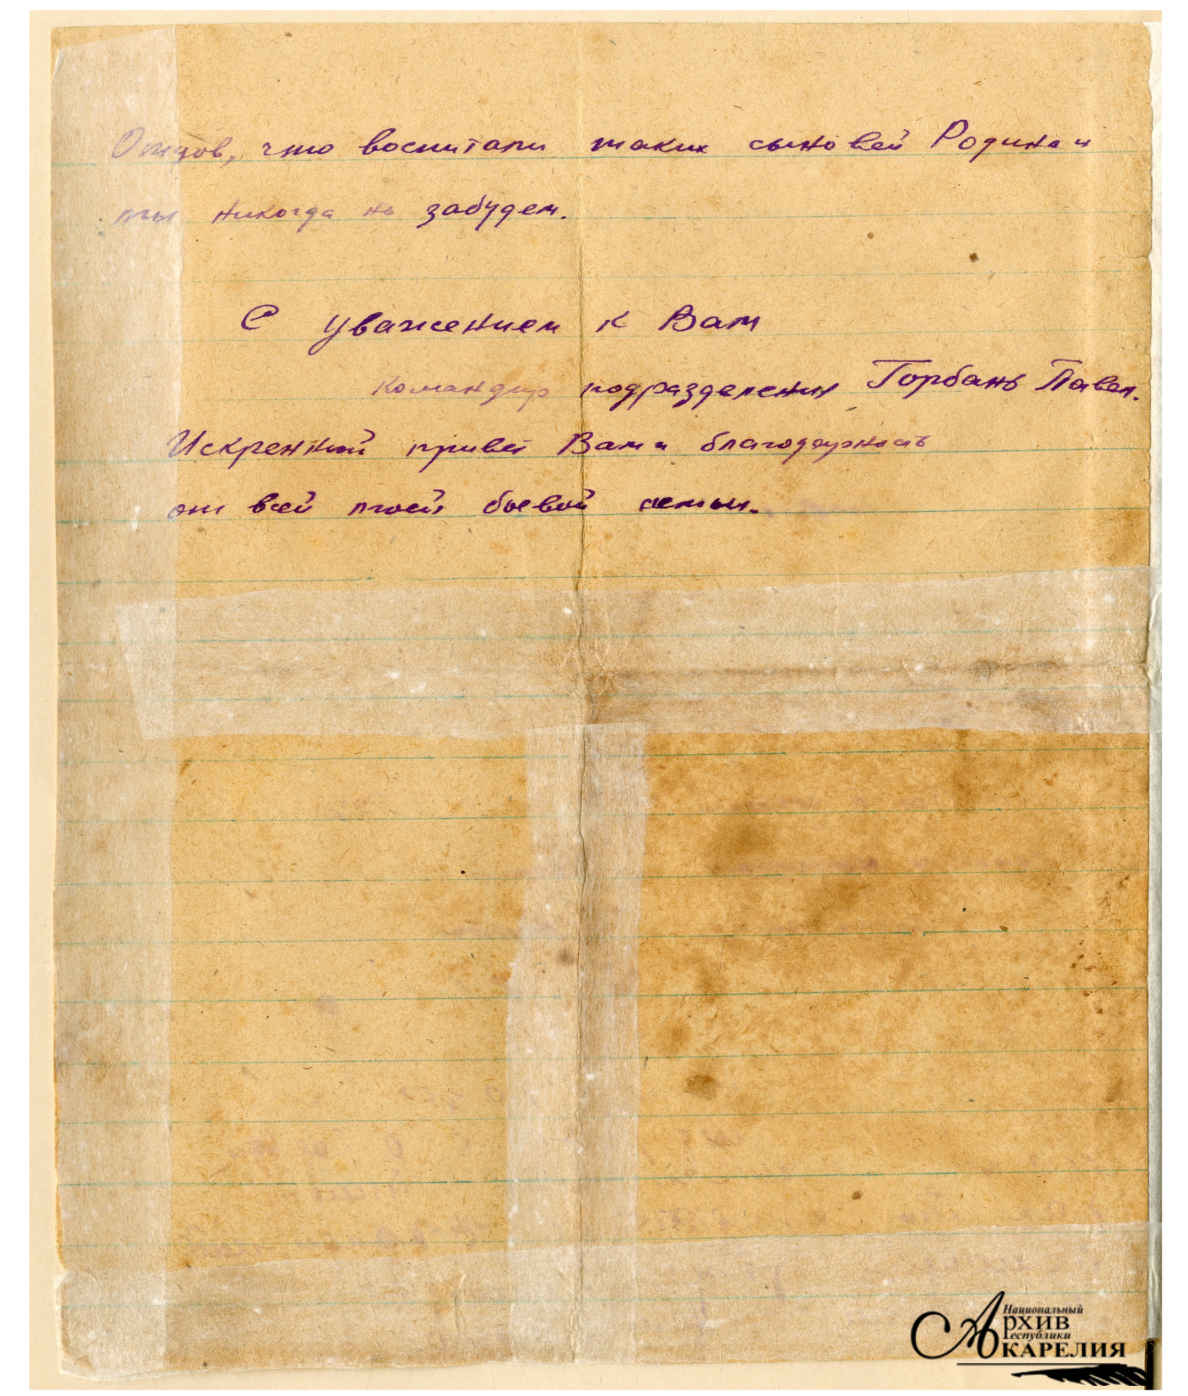 Отцов, что воспитали таких сыновей Родина и
мы никогда не забудем.
С уважением к Вам
командир подразделения Горбань Павел.
Искренний привет Вам и благодарность
от всей моей боевой семьи.
Национальный
АРХИВ
Республики
КАРЕЛИЯ